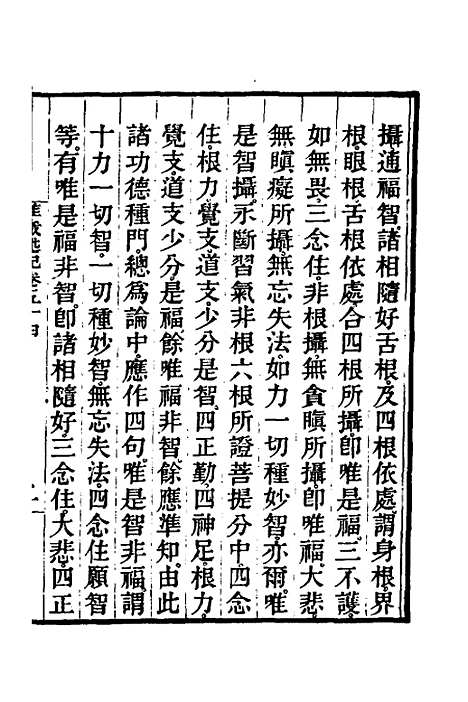 攝通福智諸相隨好舌根及四根依處謂身根界
根眼根舌根依處合四根所攝卽唯是福三不護
如無畏三念住非根攝無貪瞋所攝卽唯福大悲
無瞋癡所攝無忘失法如力一切種妙智亦爾唯
是智攝永斷習氣非根六根所證菩提分中四念
住根力覺支道支少分是智四正勤四神足根力
覺支道支少分是福餘唯福非智餘應準知由此
諸功德種門總爲論中應作四句唯是智非福謂
十力一切智一切種妙智無忘失法四念住願智
等有唯是福非智卽諸相隨好三念住大悲四正